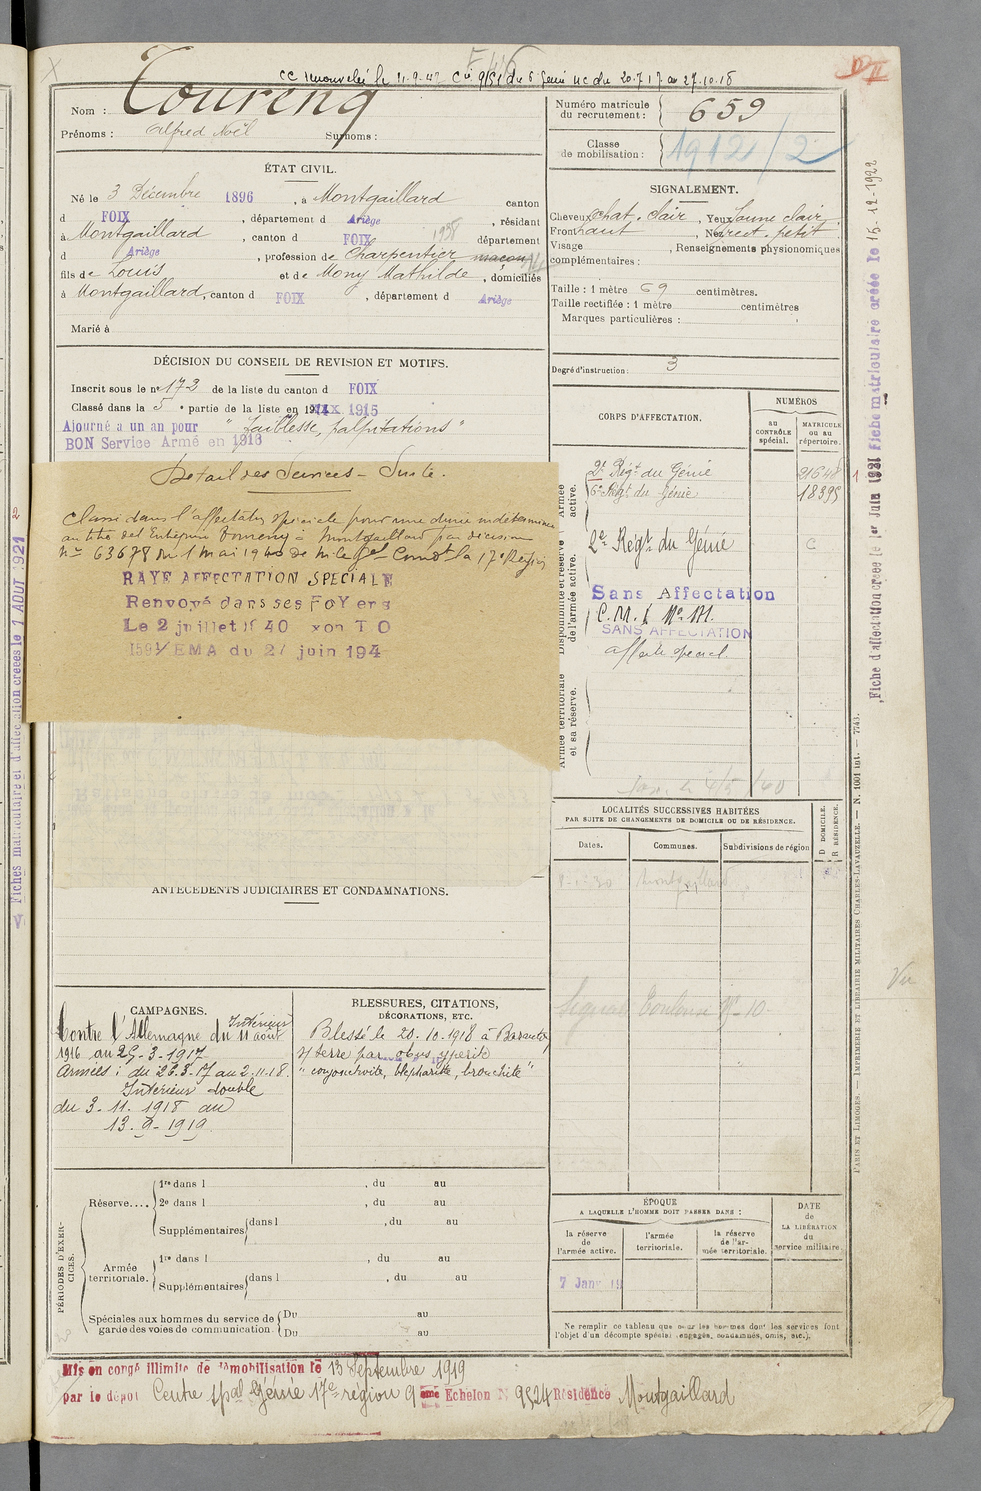 CC renouvelée le 11-9-42 Cie 9/51 du 6 Génie UC du 20.7.17 au 27.10.18
Nom : Toureng
Prénoms : Alfred Noël Surnoms :
Numéro matricule du recrutement : 659
Classe de mobilisation : 1912/2
ÉTAT CIVIL.
Né le 3 Décembre 1896, à Montgaillard canton
d FOIX, département d Ariège, résidant
à Montgaillard, canton d FOIX 1938 département
d Ariège, profession de Charpentier maçon
fils de Louis et de Mony Mathilde, domiciliés
à Montgaillard, canton d FOIX, département d Ariège
Marié à
SIGNALEMENT.
Cheveux chat. clair, Yeux jaune clair
Front haut, Nez rect. petit
Visage , Renseignements physionomiques
complémentaires :
Taille : 1 mètre 69 centimètres.
Taille rectifiée : 1 mètre centimètres
Marques particulières :
Degré d'instruction : 3
DÉCISION DU CONSEIL DE REVISION ET MOTIFS.
Inscrit sous le no 173 de la liste du canton d FOIX
Classé dans la 5e partie de la liste en 1915
Ajourné a un an pour "faiblesse, palpitations"
BON Service Armé en 1916
CORPS D'AFFECTATION.
NUMÉROS
au CONTRÔLE spécial.
MATRICULE ou au répertoire.
Armée active.
2e Régt du Génie 21648
6e Régt du Génie 18395
Disponibilité et réserve de l'armée active.
2e Régt du Génie C
Sans Affectation
C. M. I Mo. M.
SANS AFFECTATION
Affecté spécial.
Armée territoriale et sa réserve.
Détail des Services - Suite
Classé dans l'affectation spéciale pour une durée indéterminée
au titre de l'Entreprise Toureng à Montgaillard par décision
no 63678 du 1 mai 1940 de Mr le Gal Comdt la 17e Région
RAYE AFFECTATION SPECIALE
Renvoyé dans ses FoYers
Le 2 juillet 1940
EMA du 27 juin 194
LOCALITÉS SUCCESSIVES HABITÉES
PAR SUITE DE CHANGEMENTS DE DOMICILE OU DE RÉSIDENCE.
Dates.
Communes.
Subdivisions de région
D DOMICILE.
R RÉSIDENCE.
Montgaillard
ANTÉCÉDENTS JUDICIAIRES ET CONDAMNATIONS.
CAMPAGNES.
Contre l'Allemagne du 11 août
Intérieur
1916 au 25-3-1917
Armées : du 26.3.17 au 2.11.18.
Intérieur double
du 3. 11. 1918 au
13. 9- 1919
BLESSURES, CITATIONS,
DÉCORATIONS, ETC.
Blessé le 20. 10. 1918 à
s/ Serre par obus ypérité
"conjonctivite, blépharite, bronchite"
PÉRIODES D'EXERCICES.
Réserve....
1re dans l , du au
2e dans l , du au
Supplémentaires dans l , du au
Armée territoriale.
1re dans l , du au
Supplémentaires dans l , du au
Spéciales aux hommes du service de garde des voies de communication :
Du au
Du au
ÉPOQUE
A LAQUELLE L'HOMME DOIT PASSER DANS :
la réserve de l'armée active.
l'armée territoriale.
la réserve de l'armée territoriale.
DATE de LA LIBÉRATION du service militaire.
7 Janv 19
Ne remplir ce tableau que pour les hommes dont les services font
l'objet d'un décompte spécial (engagés, condamnés, omis, etc.).
Mis en congé illimité de démobilisation le 13 Septembre 1919
par le dépôt Centre spal Génie 17e région 9ème Echelon N 9524 Résidence Montgaillard
Fiches matriculaire et d'affectation créées le 1 AOUT 1921
Fiche d'affectation créée le 1er Juin 1921 Fiche matriculaire créée le 15-12-1922
PARIS ET LIMOGES. — IMPRIMERIE ET LIBRAIRIE MILITAIRES CHARLES-LAVAUZELLE. — N. 1001 int. — 7743.
Vu